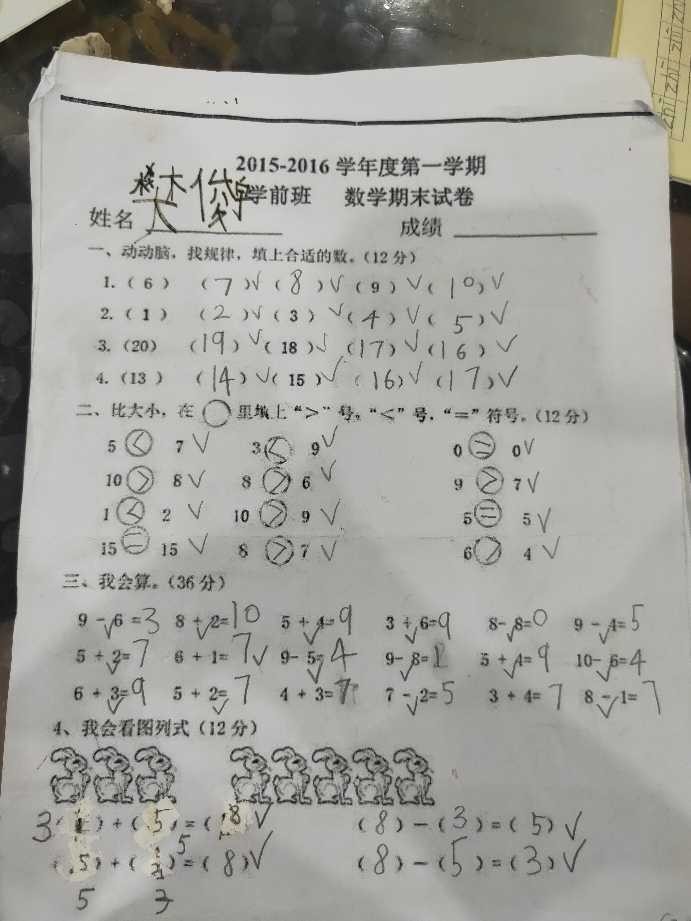 2015-2016 学年度第一学期
学前班 数学期末试卷
姓名 成绩
一、动动脑，找规律，填上合适的数。（12分）
1.（ 6 ） （ 7 ）√（ 8 ）√（ 9 ）√（ 10 ）√
2.（ 1 ） （ 2 ）√（ 3 ）√（ 4 ）√（ 5 ）√
3.（20） （19）√（ 18 ）√（17）√（16）√
4.（13 ） （14）√（ 15 ）√（16）√（17）√
二、比大小，在○里填上“>”号。“<”号.“=”符号。（12分）
5 < 7 √ 3 < 9 √ 0 = 0 √
10 > 8 √ 8 > 6 √ 9 > 7 √
1 < 2 √ 10 > 9 √ 5 = 5 √
15 = 15 √ 8 > 7 √ 6 > 4 √
三、我会算。（36分）
9 - 6 =3 8 + 2=10 5 + 4=9 3 + 6=9 8- 8=0 9 - 4=5
5 + 2=7 6 + 1=7 √ 9- 5=4 9- 8=1 5 + 4=9 10- 6=4
6 + 3=9 5 + 2=7 4 + 3=7 7 - 2=5 3 + 4=7 8 - 1=7
4、我会看图列式（12分）
3（ ）+（ 5 ）=（ 8 ）√ （ 8 ）-（ 3 ）=（ 5 ）√
（ 5 ）+（ 3 ）5=（ 8 ）√ （ 8 ）-（ 5 ）=（ 3 ）√
5 3